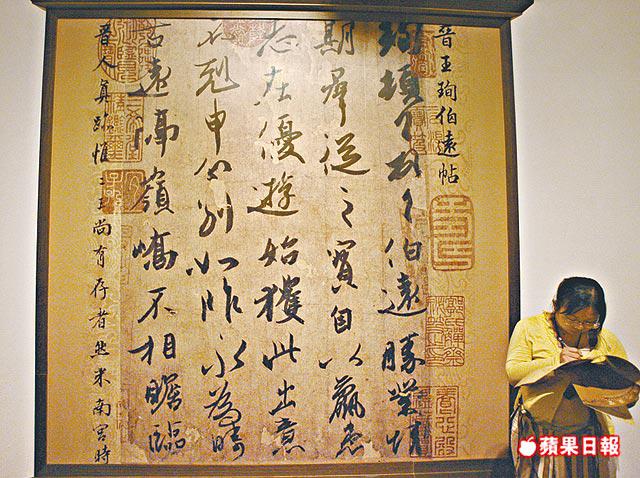 晉王珣伯遠帖
珣頓首頓首伯遠勝業情
期羣從之寶自以羸患
志在優遊始獲此出意
不剋申分別如昨永為疇
古遠隔嶺嶠不相瞻臨
晉人真蹟惟二王尚有存者然米南宮時
蘋果日報